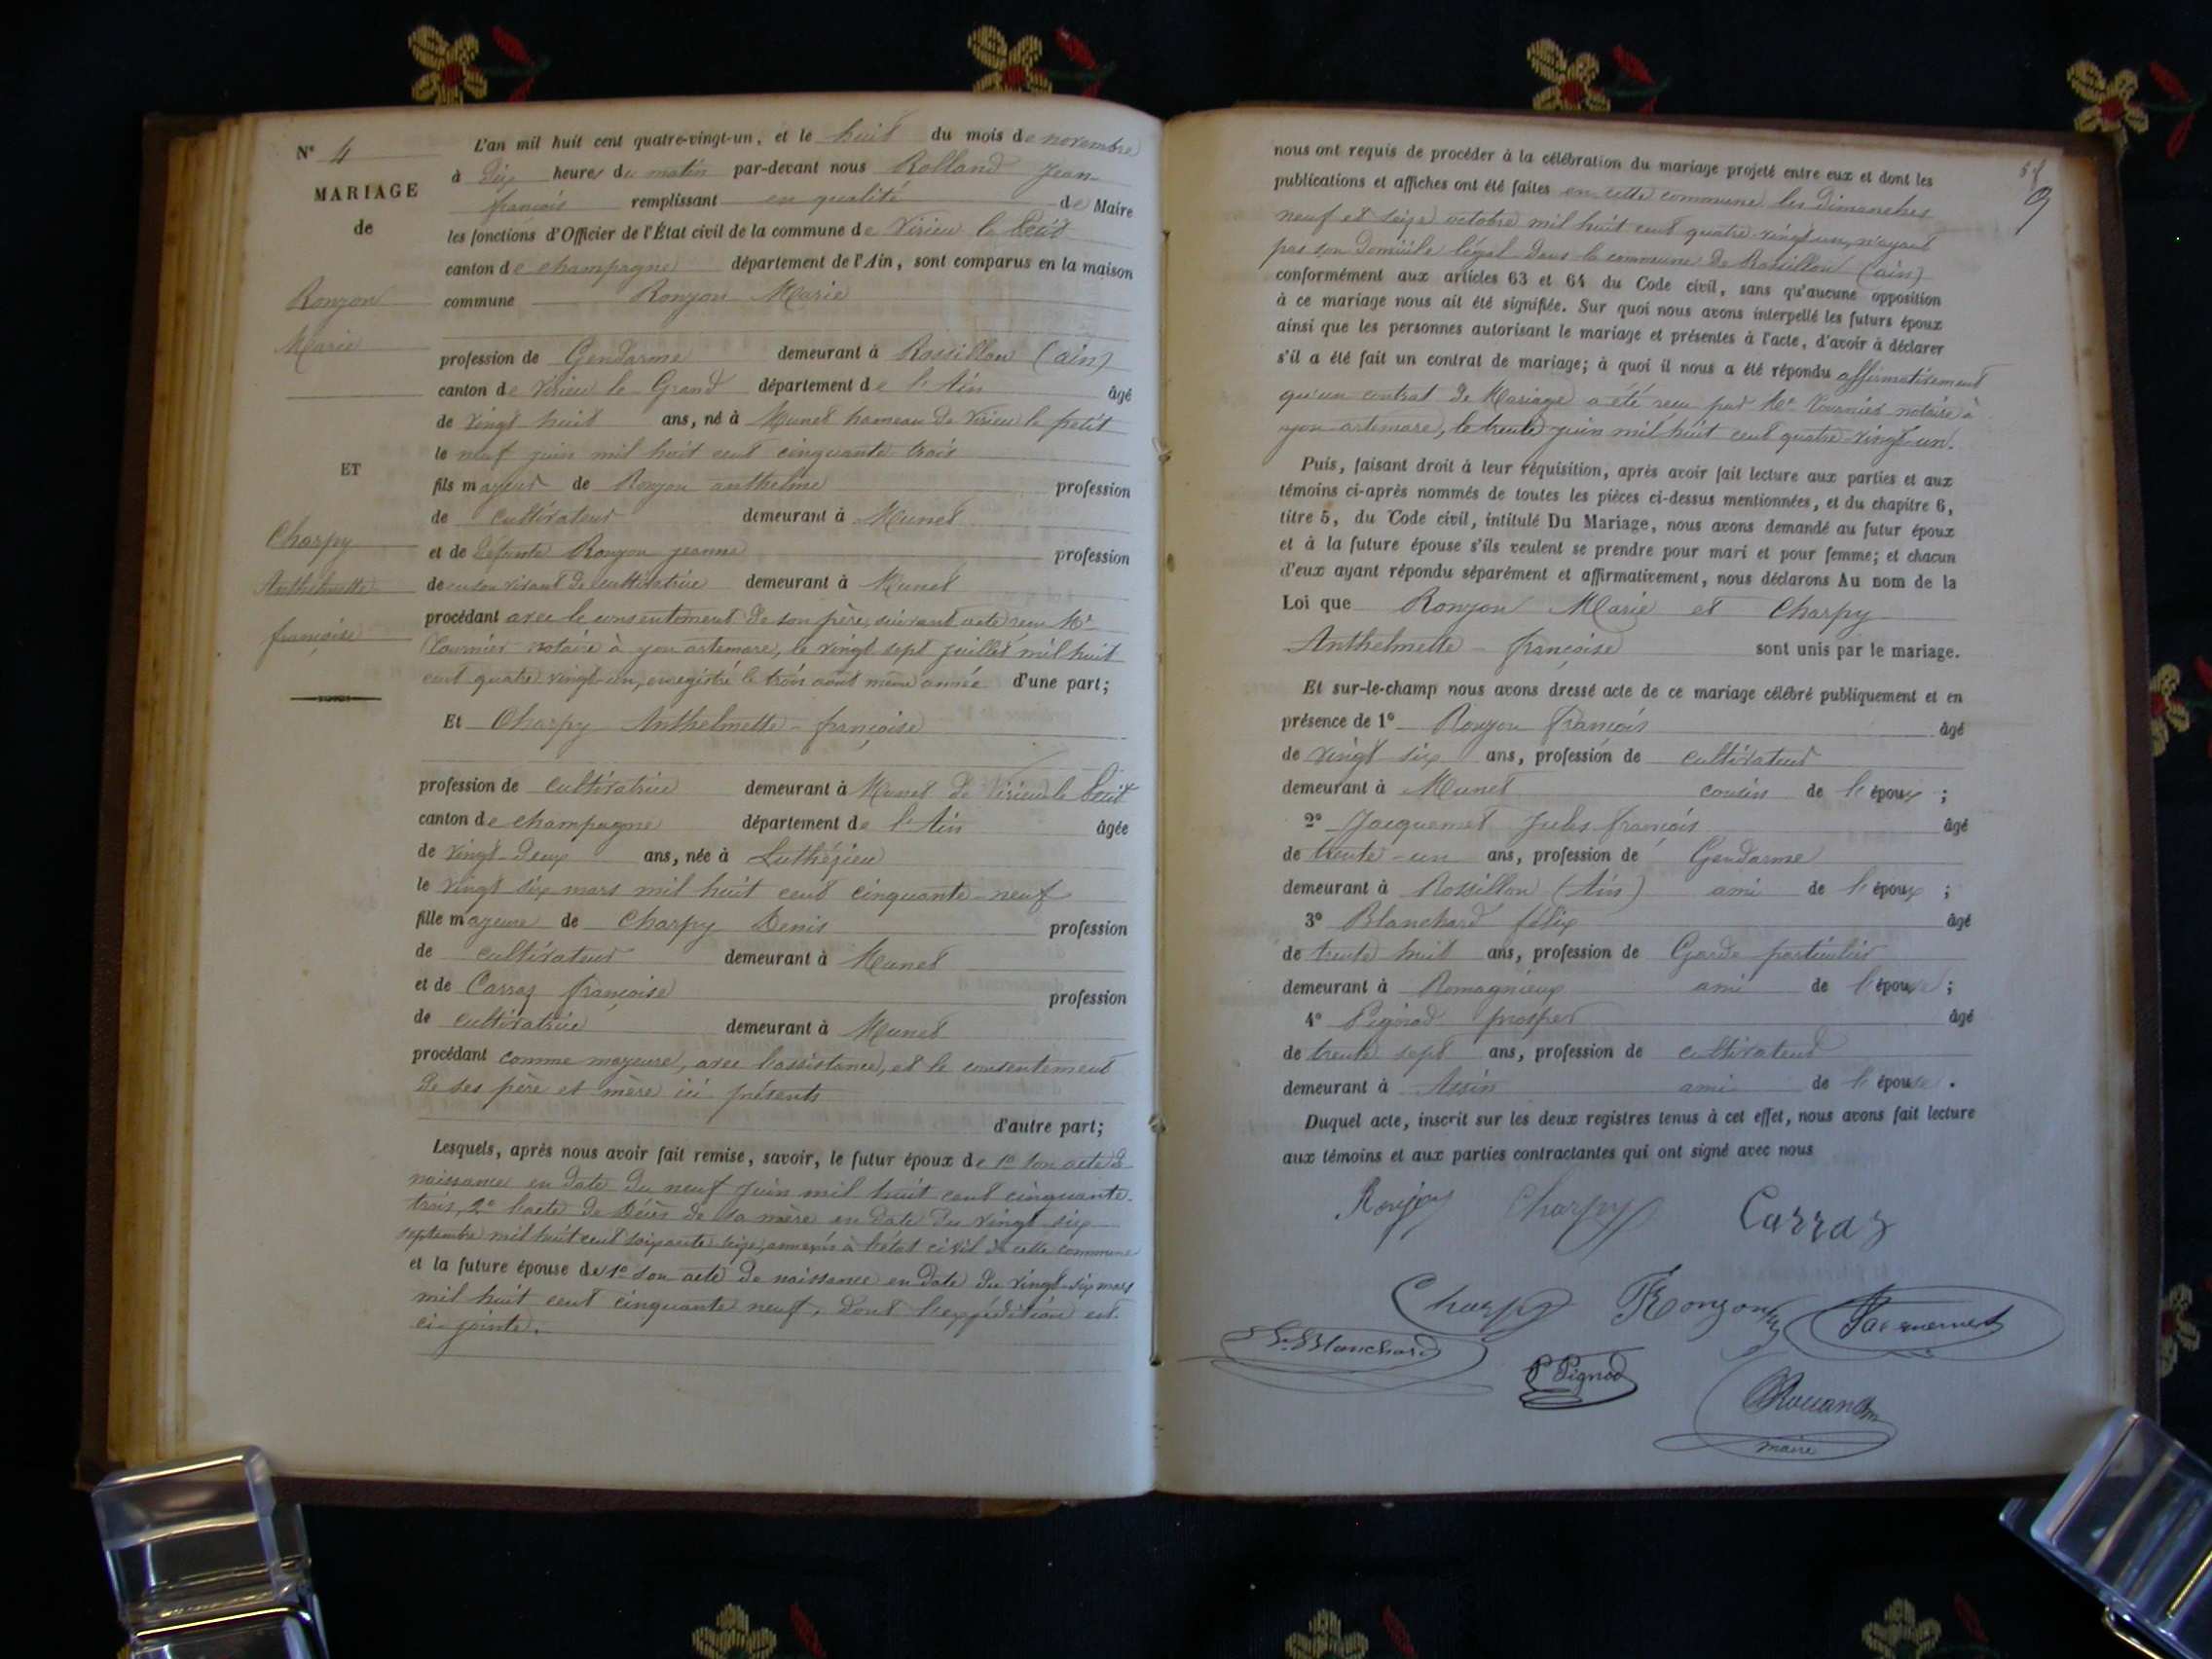 N° 4
MARIAGE
de
Ronzon
Marie
ET
Charpy
Anthelmette
françoise
L'an mil huit cent quatre-vingt-un, et le huit du mois de novembre
à dix heures du matin par-devant nous Rolland Jean-
françois remplissant en qualité de Maire
les fonctions d'Officier de l'État civil de la commune de Virieu le Petit
canton de champagne département de l'Ain, sont comparus en la maison
commune Ronzon Marie
profession de Gendarme demeurant à Rossillon (ain)
canton de Virieu le Grand département de l'Ain âgé
de vingt huit ans, né à Munet hameau de Virieu le petit
le neuf juin mil huit cent cinquante trois
fils majeur de Ronzon anthelme profession
de cultivateur demeurant à Munet
et de défunte Ronzon jeanne profession
de en son vivant de cultivatrice demeurant à Munet
procédant avec le consentement de son père, suivant acte reçu Me
notaire à yon artemare, le vingt sept juillet mil huit
cent quatre vingt-un, enregistré le trois aout même année d'une part;
Et Charpy Anthelmette-françoise
profession de cultivatrice demeurant à Munet de Virieu le Petit
canton de champagne département de l'Ain âgée
de vingt-deux ans, née à Luthézieu
le vingt six mars mil huit cent cinquante-neuf
fille majeure de Charpy Denis profession
de cultivateur demeurant à Munet
et de Carraz françoise profession
de cultivatrice demeurant à Munet
procédant comme majeure, avec l'assistance, et le consentement
de ses père et mère ici présents
d'autre part;
Lesquels, après nous avoir fait remise, savoir, le futur époux de 1° son acte de
naissance en date du neuf juin mil huit cent cinquante-
trois, 2° l'acte de décès de sa mère en date du vingt-six
septembre mil huit cent soixante seize, annexés à l'état civil de cette commune
et la future épouse de 1° son acte de naissance en date du vingt-six mars
mil huit cent cinquante neuf, dont l'expédition est
ci-jointe.
9
nous ont requis de procéder à la célébration du mariage projeté entre eux et dont les
publications et affiches ont été faites en cette commune les dimanches
neuf et seize octobre mil huit cent quatre vingt un, n'ayant
pas son domicile légal dans la commune de Rossillon (ain)
conformément aux articles 63 et 64 du Code civil, sans qu'aucune opposition
à ce mariage nous ait été signifiée. Sur quoi nous avons interpellé les futurs époux
ainsi que les personnes autorisant le mariage et présentes à l'acte, d'avoir à déclarer
s'il a été fait un contrat de mariage; à quoi il nous a été répondu affirmativement
qu'un contrat de Mariage a été reçu par Me notaire à
yon artemare, le trente juin mil huit cent quatre-vingt-un.
Puis, faisant droit à leur réquisition, après avoir fait lecture aux parties et aux
témoins ci-après nommés de toutes les pièces ci-dessus mentionnées, et du chapitre 6,
titre 5, du Code civil, intitulé Du Mariage, nous avons demandé au futur époux
et à la future épouse s'ils veulent se prendre pour mari et pour femme; et chacun
d'eux ayant répondu séparément et affirmativement, nous déclarons Au nom de la
Loi que Ronzon Marie et Charpy
Anthelmette-françoise sont unis par le mariage.
Et sur-le-champ nous avons dressé acte de ce mariage célébré publiquement et en
présence de 1° Ronzon françois âgé
de vingt six ans, profession de cultivateur
demeurant à Munet cousin de l'époux ;
2° Jacquemet Jules françois âgé
de trente-un ans, profession de Gendarme
demeurant à Rossillon (Ain) ami de l'époux ;
3° Blanchard félix âgé
de trente huit ans, profession de Garde particulier
demeurant à Romagnieux ami de l'épouse ;
4° Pignod prosper âgé
de trente sept ans, profession de cultivateur
demeurant à Assin ami de l'épouse .
Duquel acte, inscrit sur les deux registres tenus à cet effet, nous avons fait lecture
aux témoins et aux parties contractantes qui ont signé avec nous
Charpy Carraz
Charpy Ronzon Jacquemet
Blanchard P Pignod
maire